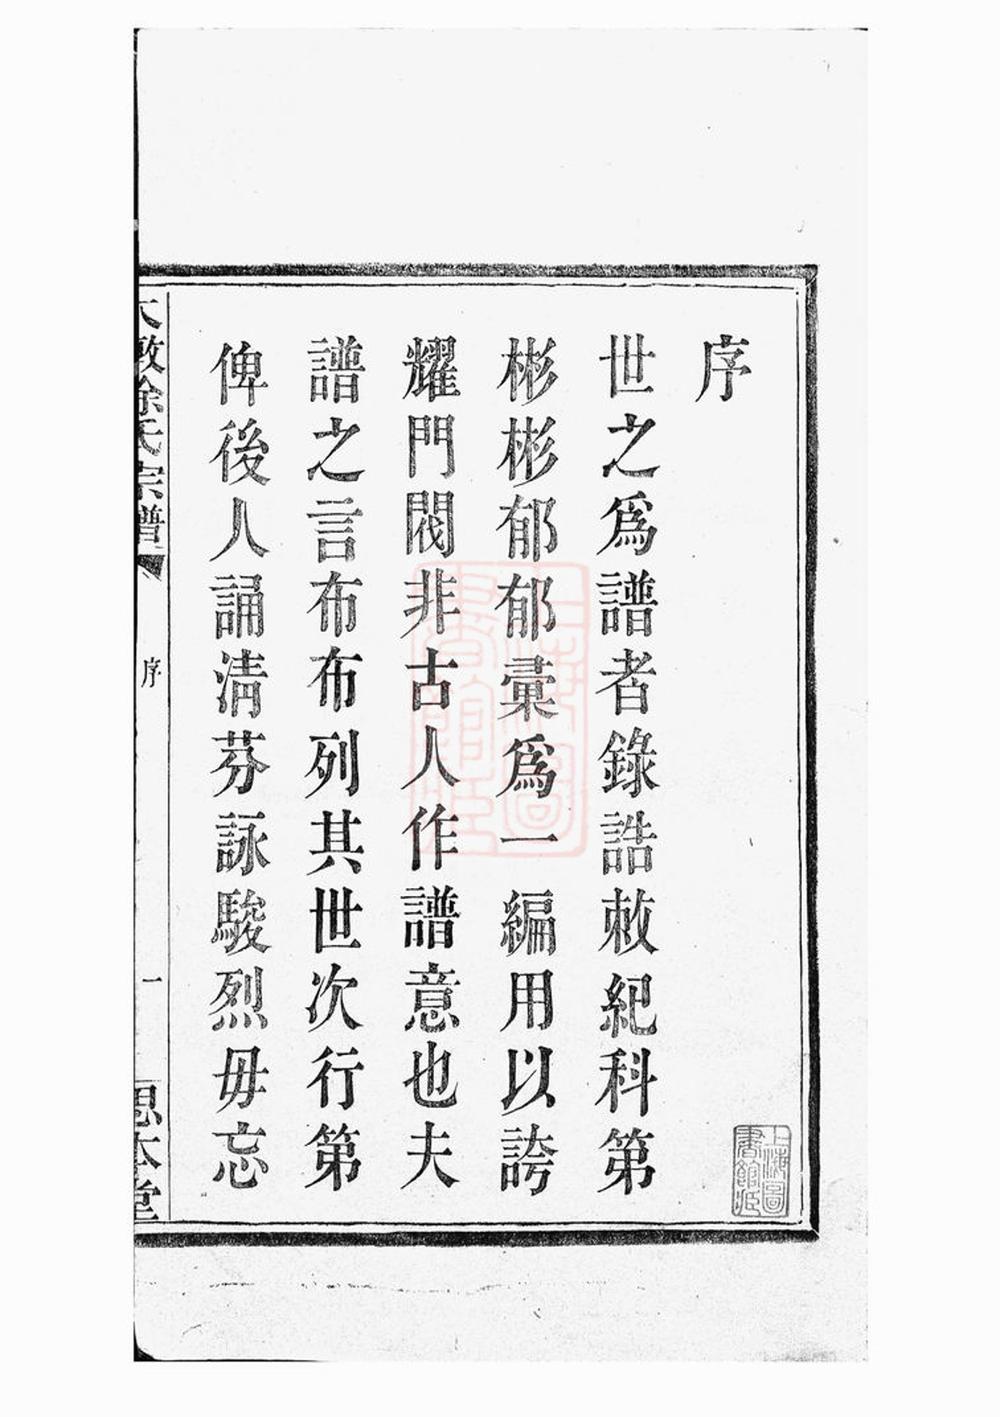 序
世之爲譜者錄誥敕紀科第
彬彬郁郁彙爲一編用以誇
耀門閥非古人作譜意也夫
譜之言布布列其世次行第
俾後人誦淸芬詠駿烈毋忘
徐氏宗譜
序
一
思本堂
上海圖書館藏